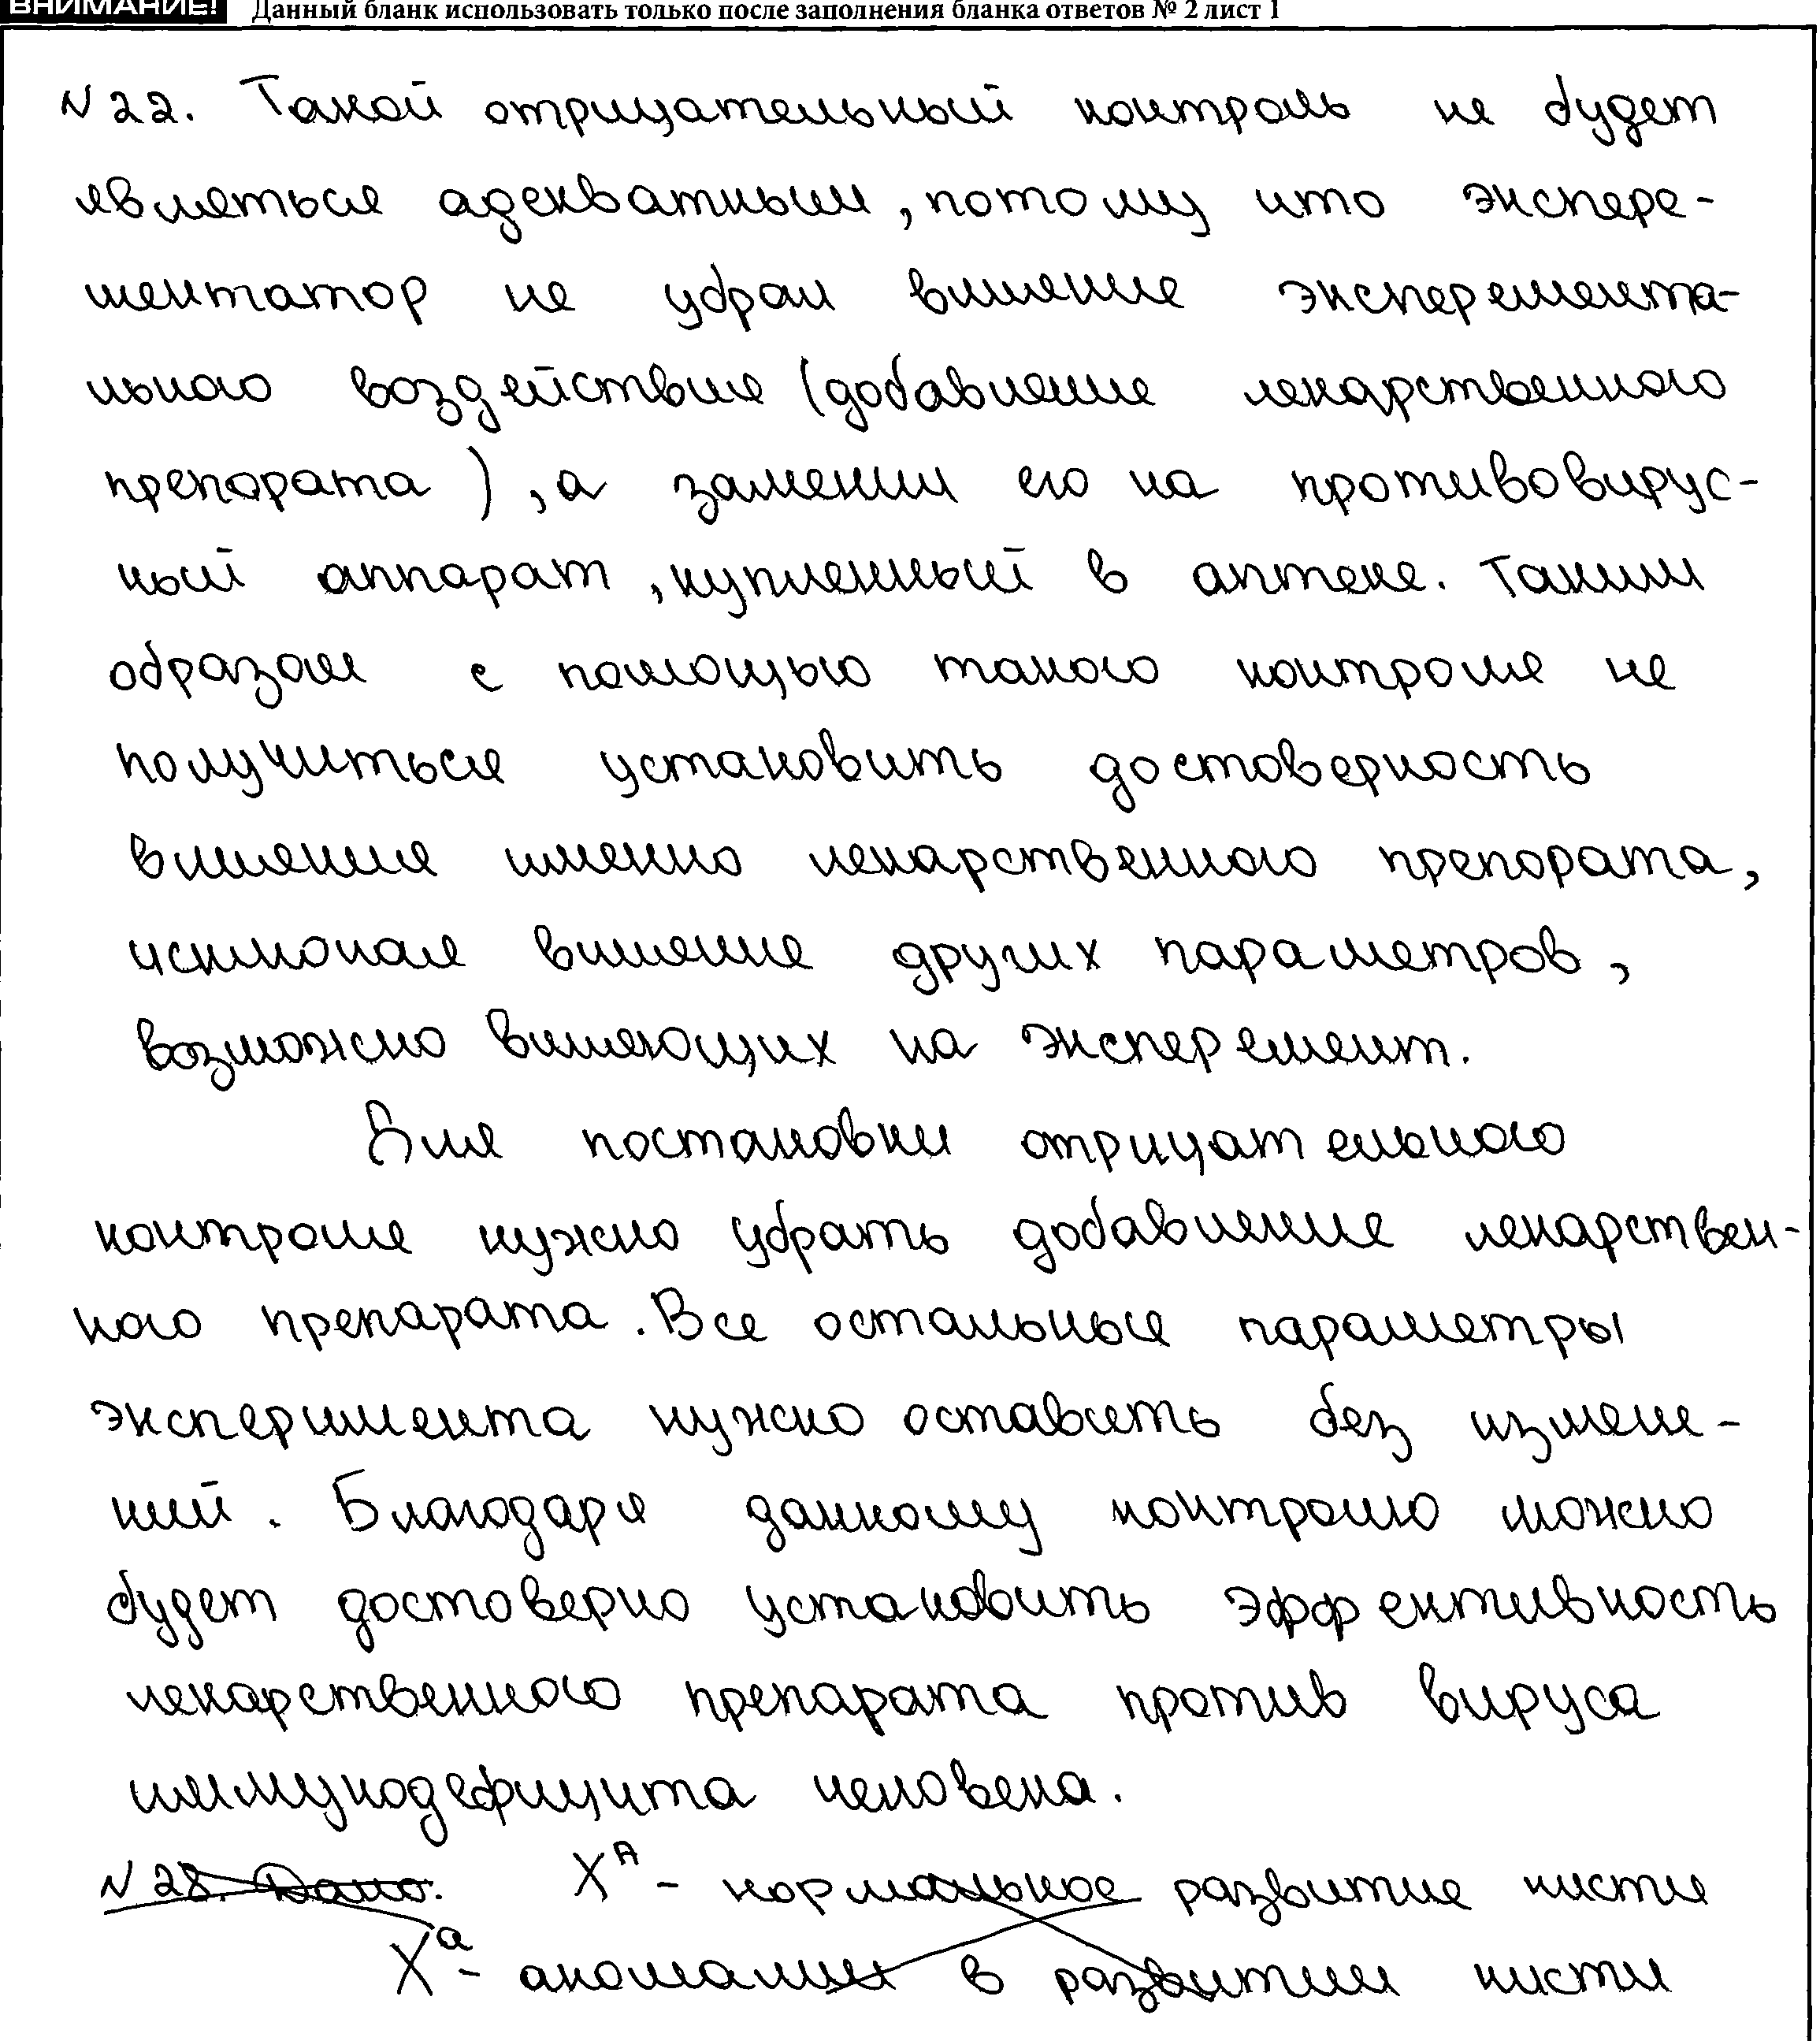 ВНИМАНИЕ! Данный бланк использовать только после заполнения бланка ответов № 2 лист 1
N 22. Такой отрицательный контроль не будет
являться адекватным, потому что экспере-
ментатор не убрал влияние эксперимента-
льного воздействия (добавление лекарственного
препората), а заменил его на противовирус-
ный аппарат, купленный в аптеке. Таким
образом с помощью такого контроля не
получиться установить достоверность
влияния именно лекарственного препората,
исключая влияние других параметров,
возможно влияющих на эксперемент.
Для постановки отрицательного
контроля нужно убрать добавление лекарствен-
ного препарата. Все остальные параметры
эксперимента нужно оставить без измене-
ний. Благодаря данному контролю можно
будет достоверно установить эффективность
лекарственного препарата против вируса
иммунодефицита человека.
N 28. Дано. X^A - нормальное развитие кисти
X^a - аномалия в развитии кисти